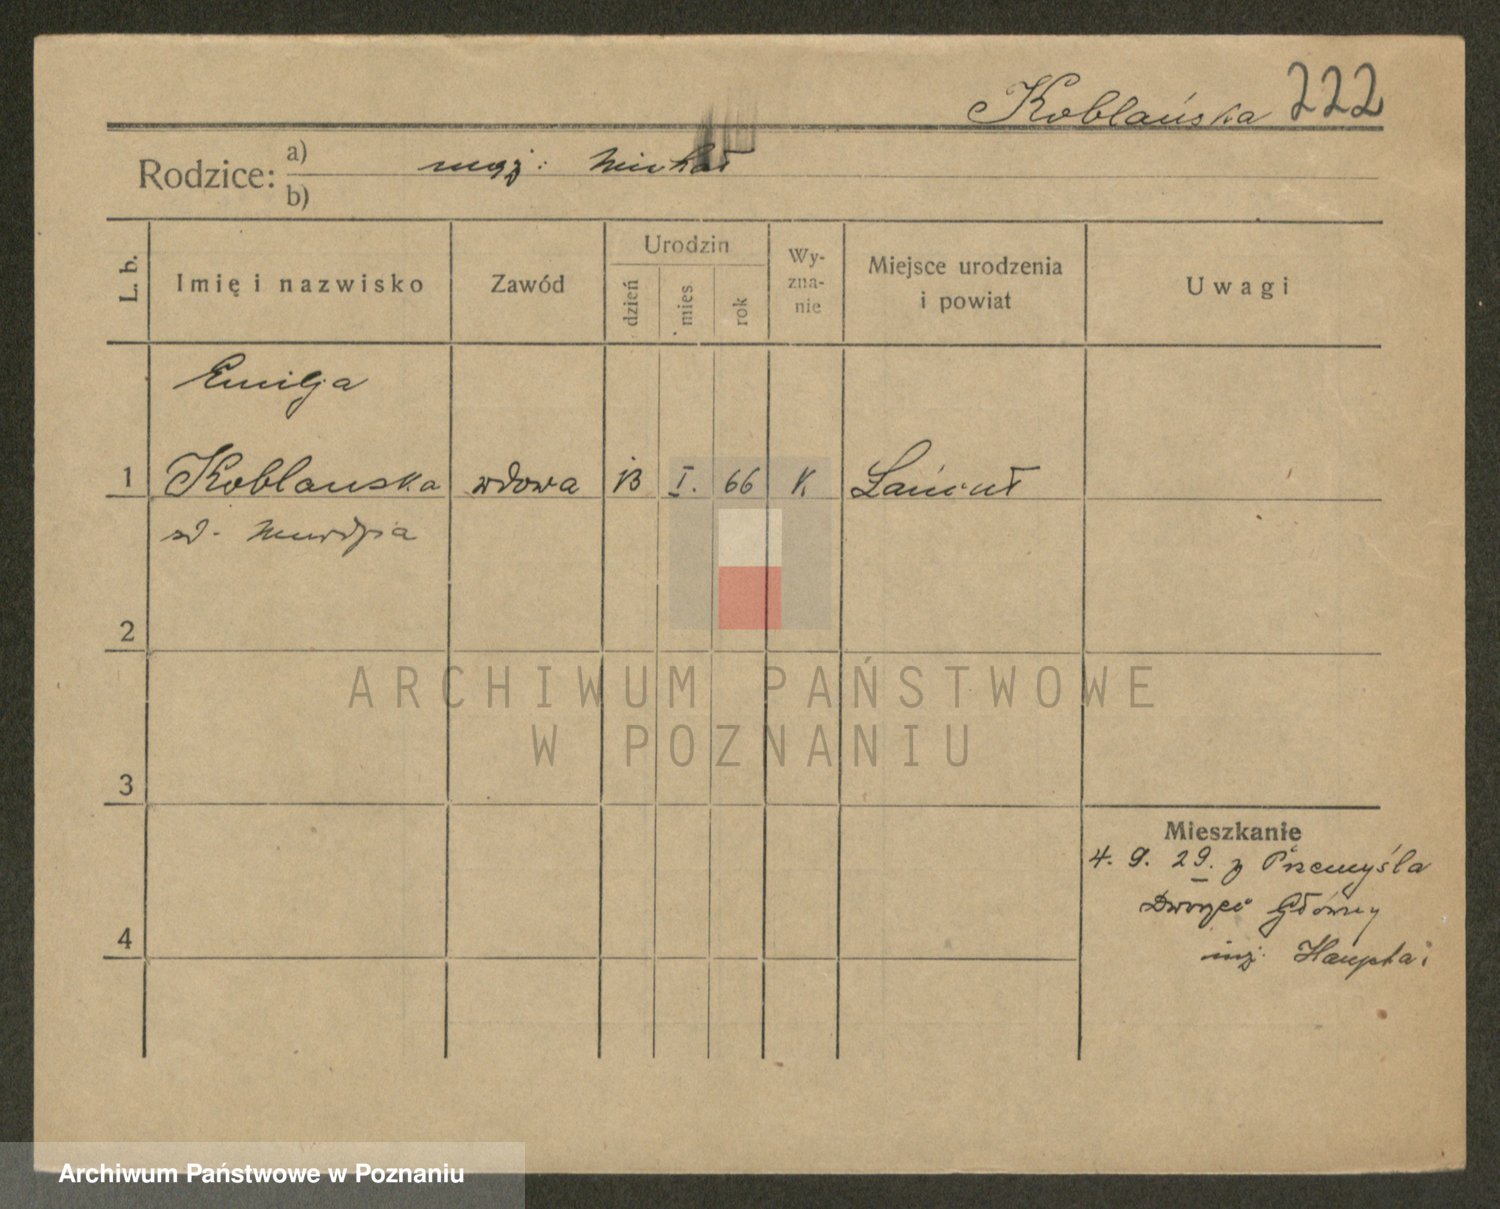 Koblańska 222
Rodzice: a) mąż: Michał
b)
L. b.
Imię i nazwisko
Zawód
Urodzin
dzień
mies
rok
Wy-
zna-
nie
Miejsce urodzenia
i powiat
Uwagi
Emilja
1 Koblanska wdowa 13 I. 66 K. Łańcut
2
3
4
Mieszkanie
4. 9. 29. z Przemyśla
Dworzec Główny
inż. Haupta
ARCHIWUM PAŃSTWOWE
W POZNANIU
Archiwum Państwowe w Poznaniu